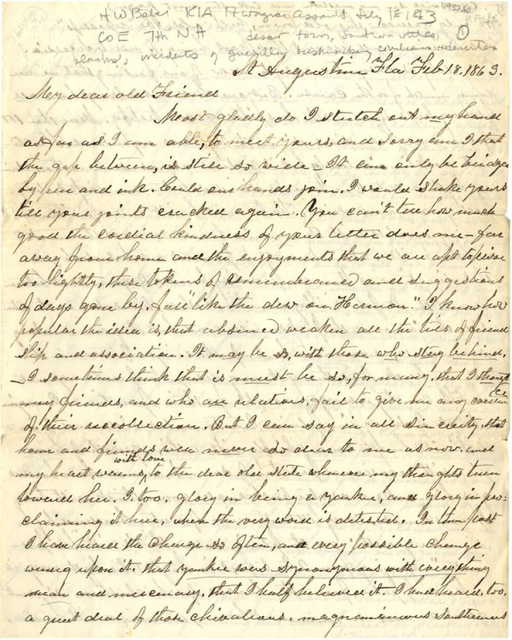 H W Baker KIA Ft Wagner Assault July 1863
Co E 7th N H
St Augustine Fla Feb 18. 1863.
My dear old Friend
Most gladly do I stretch out my hand
as far as I am able, to meet yours, and sorry am I that
the gap between, is still so wide - It can only be bridged
by pen and ink. Could our hands join. I would shake yours
till your joints cracked again. You can't tell how much
good the cordial kindness of your letter does me - far
away from home and the enjoyments that we are apt to prize
too lightly, these tokens of remembrance and suggestions
of days gone by. fall "like the dew on Hermon." I know how
popular the idea is, that absence weakens all the ties of friend
ship and association. It may be so, with those who stay behind.
- I sometimes think that it must be so, for many, that I thought
my friends, and who are relations, fail to give me any
of their recollection. But I can say in all sincerity, that
home and friends were never so dear to me as now. and
my heart warms, with love to the dear old state whenever my thoughts turn
toward her. I. too. glory in being a Yankee, and glory in pro-
claiming it here, when the very word is detested. In time past
I have heard the change so often, and every possible change
wrung upon it. that Yankee was synonymous with everything
mean and mercenary, that I half believed it. I had heard, too,
a great deal of those chivalrous, magnanimous Southerners